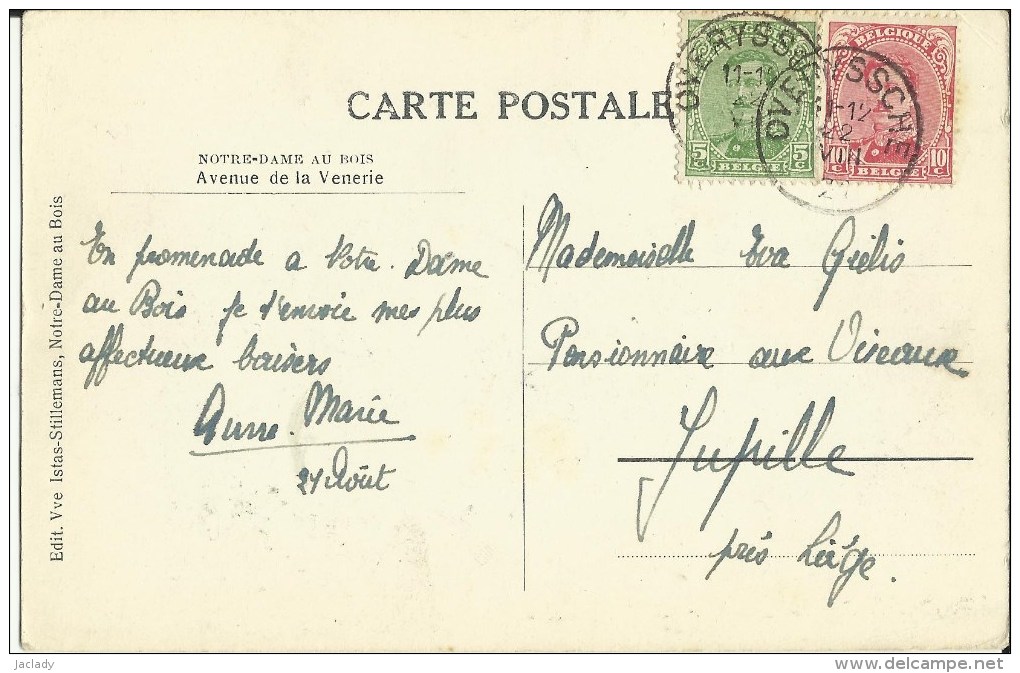 CARTE POSTALE
NOTRE-DAME AU BOIS
Avenue de la Venerie
BELGIQUE
5 c 5 c
BELGIE
10 c 10 c
BELGIE
OVERYSSCHE
11-12
22
VIII
En promenade a Notre. Dame
au Bois je t'envoie mes plus
affectueux baisers
Anne. Marie
Août
Mademoiselle Eva Gielis
Pensionnaire aux Viseaux
Jupille
près Liége.
Edit. Vve Istas-Stillemans, Notre-Dame au Bois
jaclady
www.delcampe.net